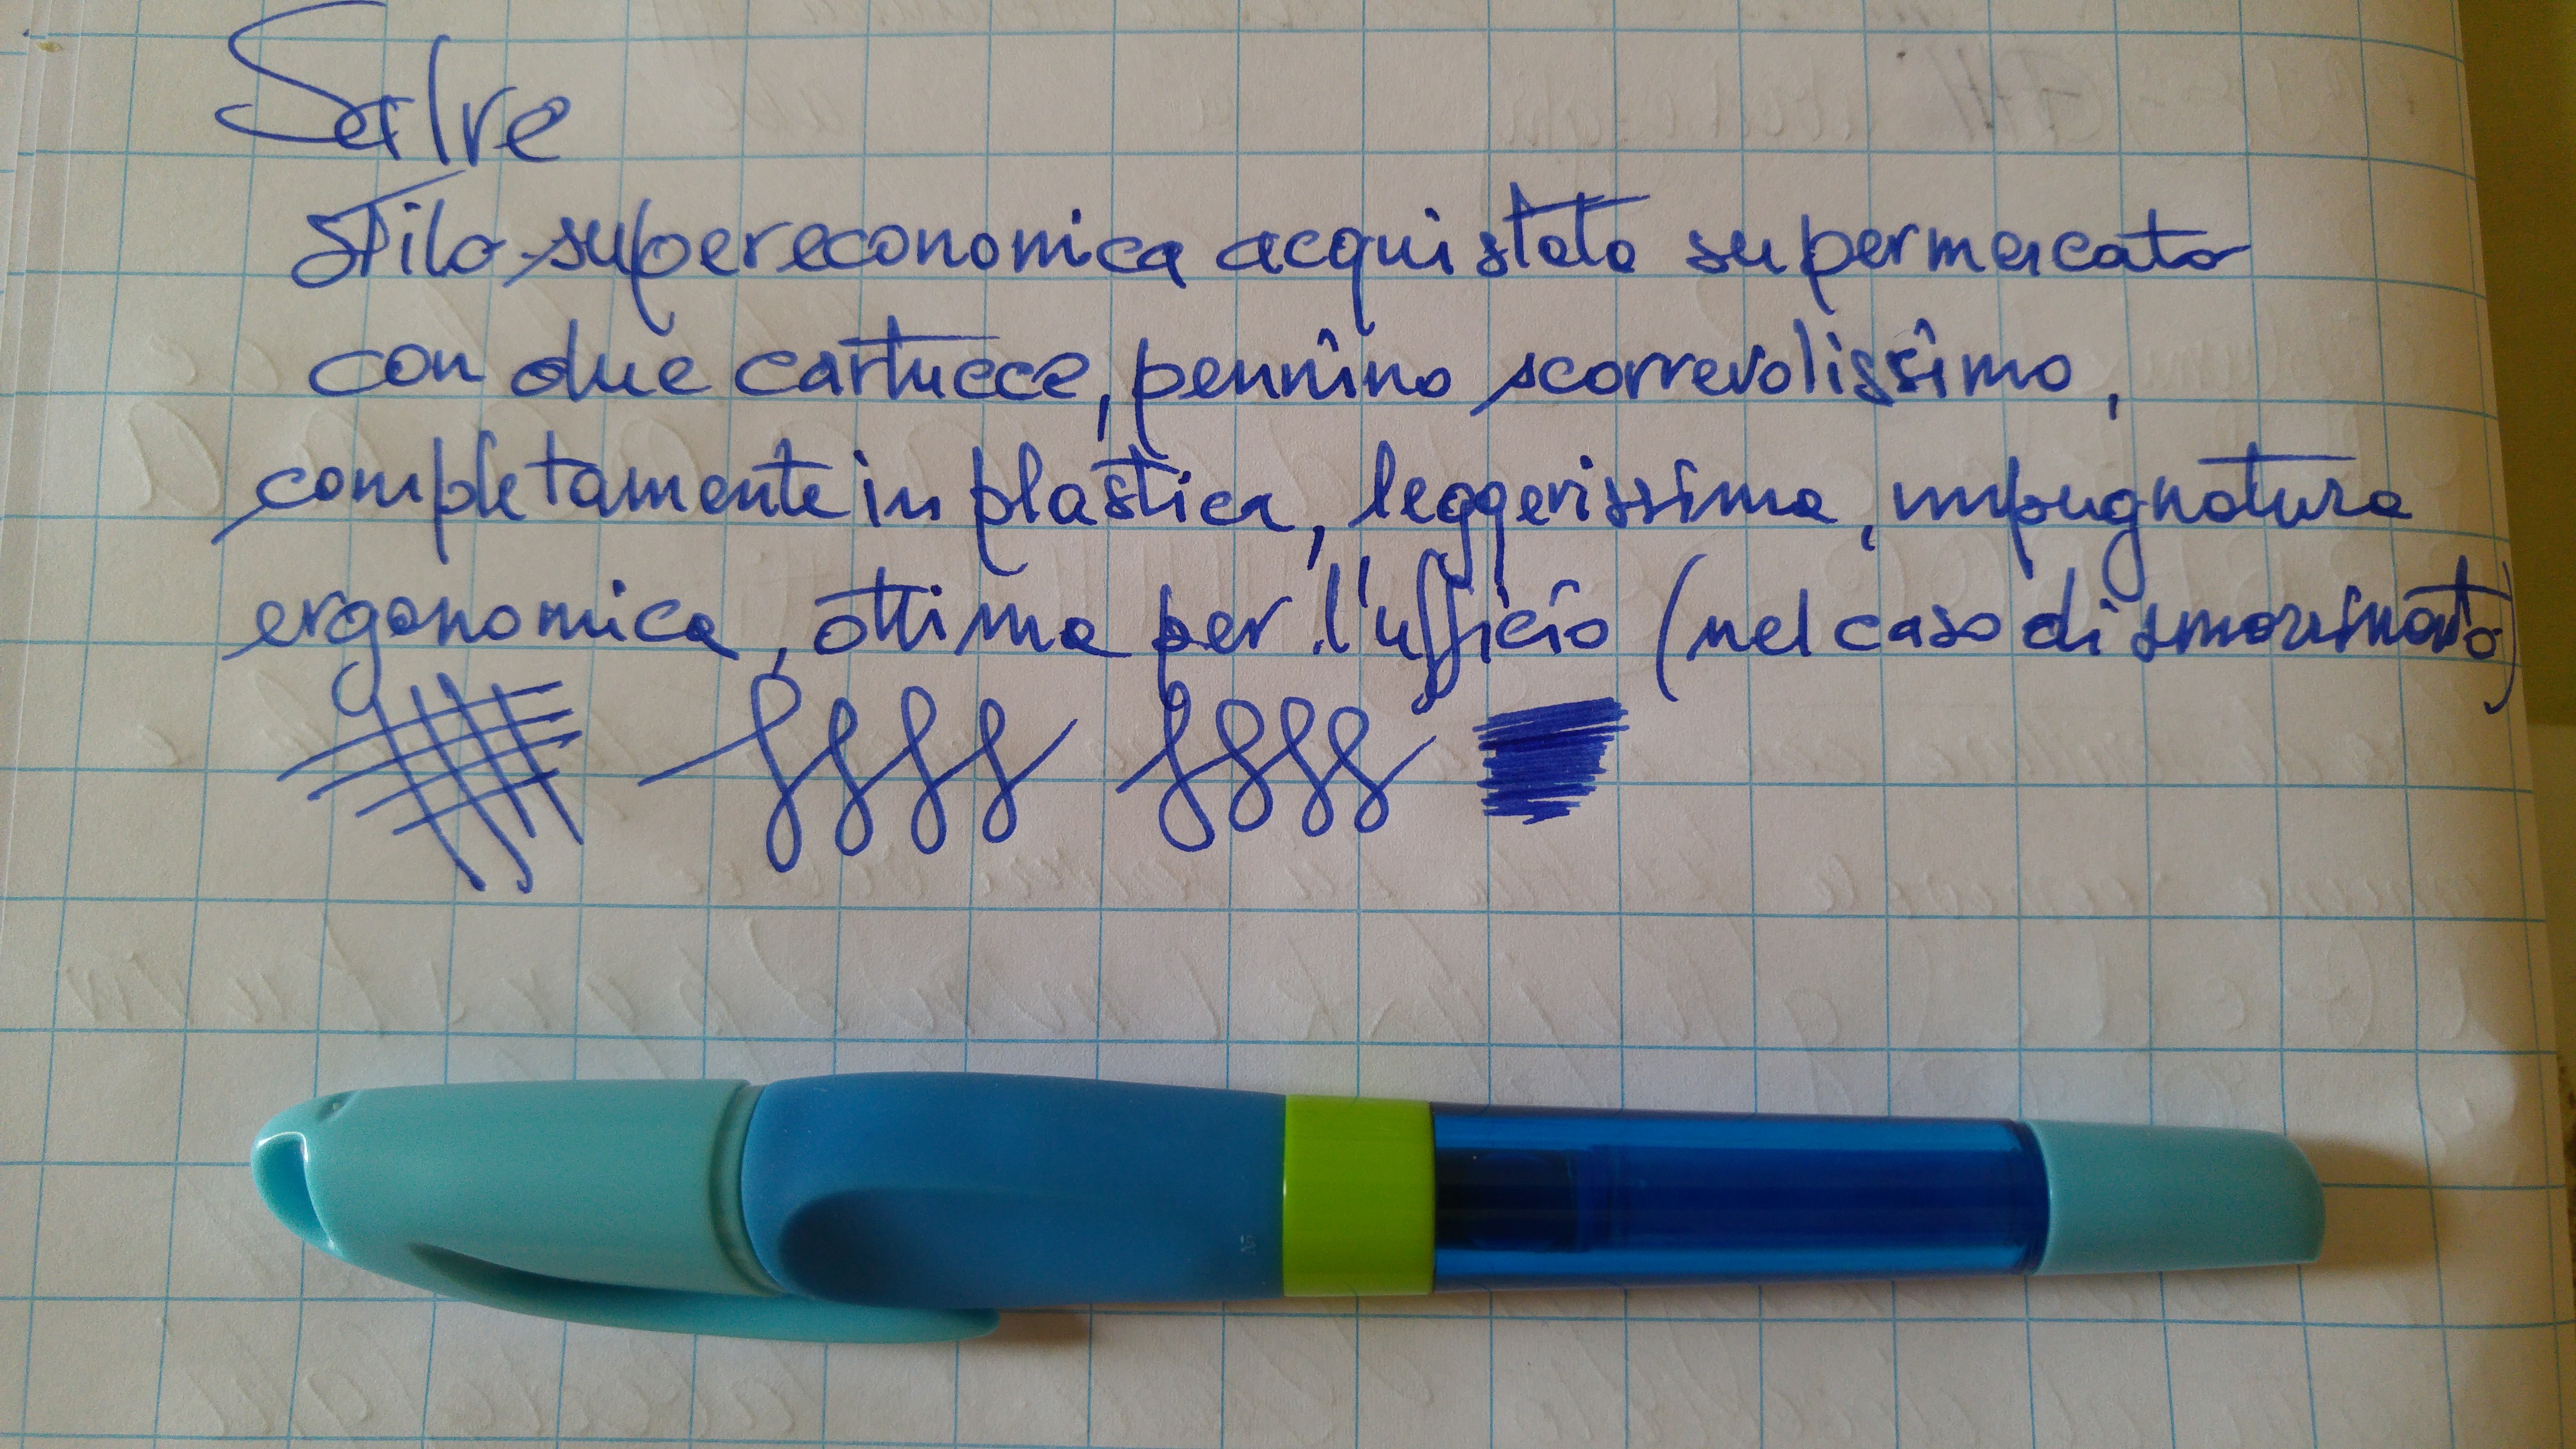 Salve
Stilo supereconomica acquistata supermercato
con due cartucce, pennino scorrevolissimo,
completamente in plastica, leggerissima, impugnatura
ergonomica, ottima per l'ufficio (nel caso di